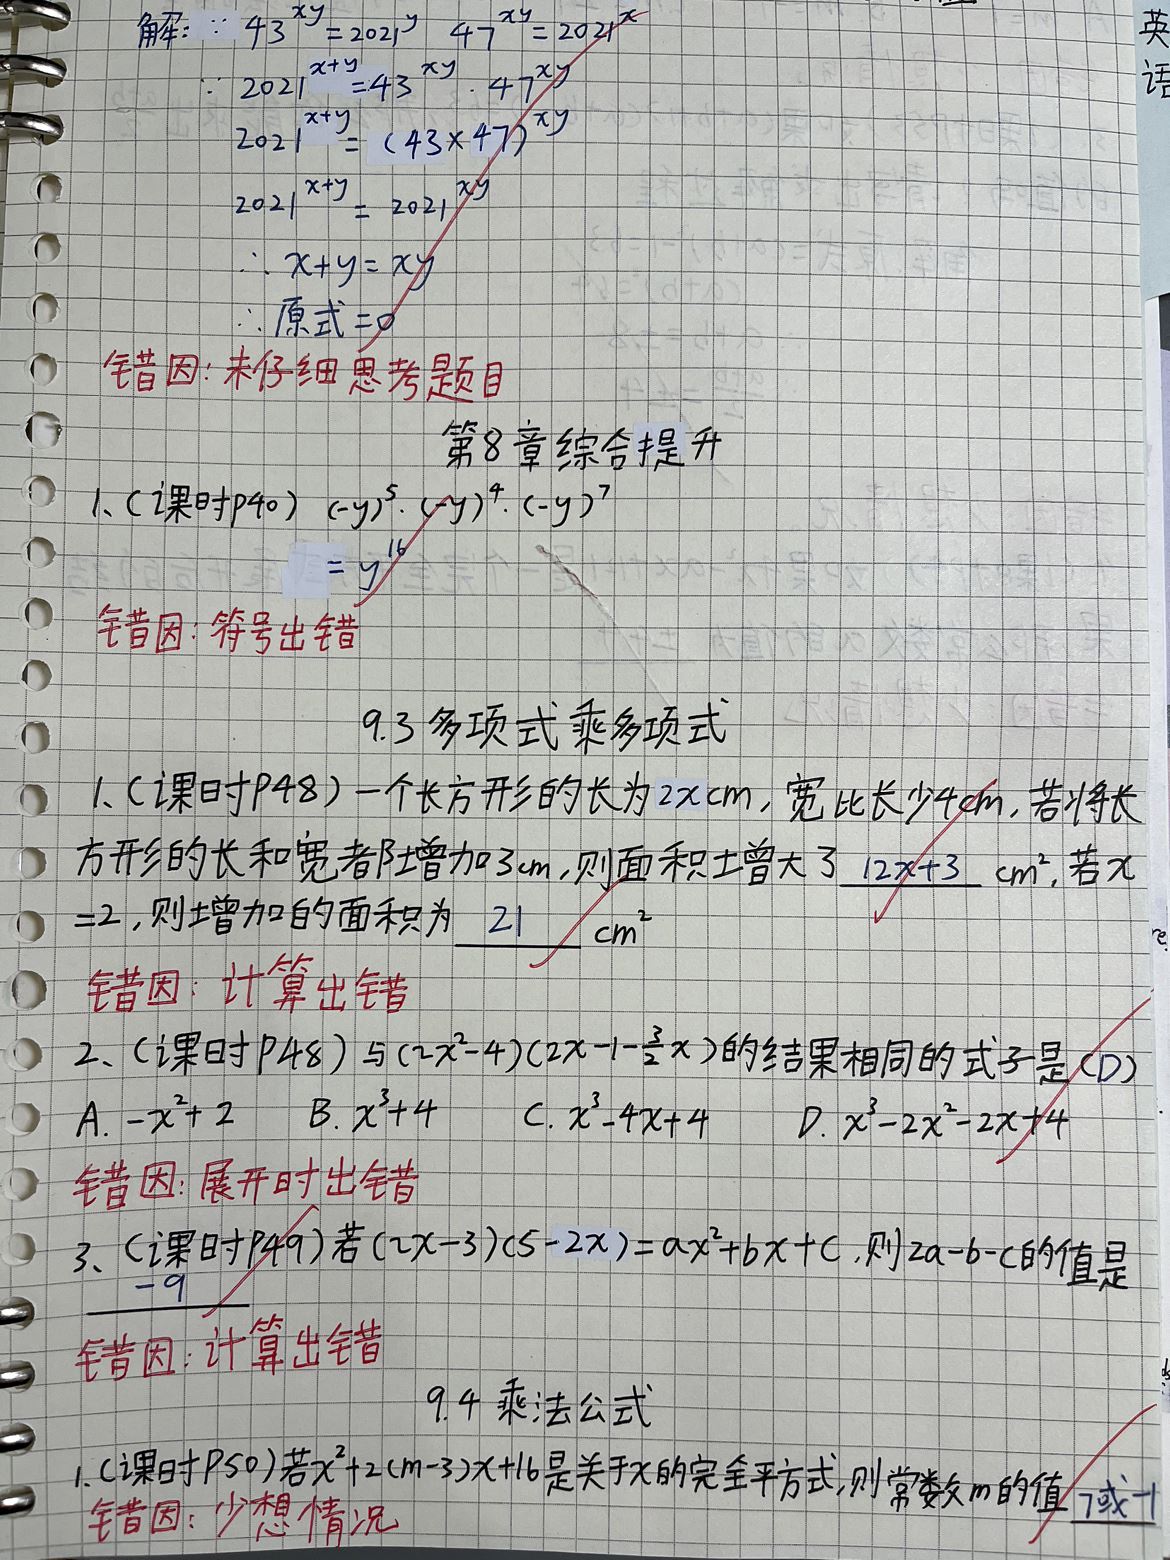 解:∵ 43^xy=2021^y 47^xy=2021^x
∵ 2021^x+y=43^xy·47^xy
2021^x+y=(43×47)^xy
2021^x+y=2021^xy
∴ x+y=xy
∴原式=0
错因:未仔细思考题目
第8章综合提升
1、(课时P40) (-y)^5·(-y)^4·(-y)^7
=y^16
错因:符号出错
9.3 多项式乘多项式
1、(课时P48)一个长方形的长为2xcm,宽比长少4cm,若将长
方形的长和宽都增加3cm,则面积增大了 12x+3 cm²,若x
=2,则增加的面积为 21 cm²
错因:计算出错
2、(课时P48)与(2x²-4)(2x-1-3/2x)的结果相同的式子是(D)
A. -x²+2 B. x³+4 C. x³-4x+4 D. x³-2x²-2x+4
错因:展开时出错
3、(课时P49)若(2x-3)(5-2x)=ax²+bx+c,则2a-b-c的值是
-9
错因:计算出错
9.4 乘法公式
1.(课时P50)若x²+2(m-3)x+16是关于x的完全平方式,则常数m的值 7或-1
错因:少想情况
英
语